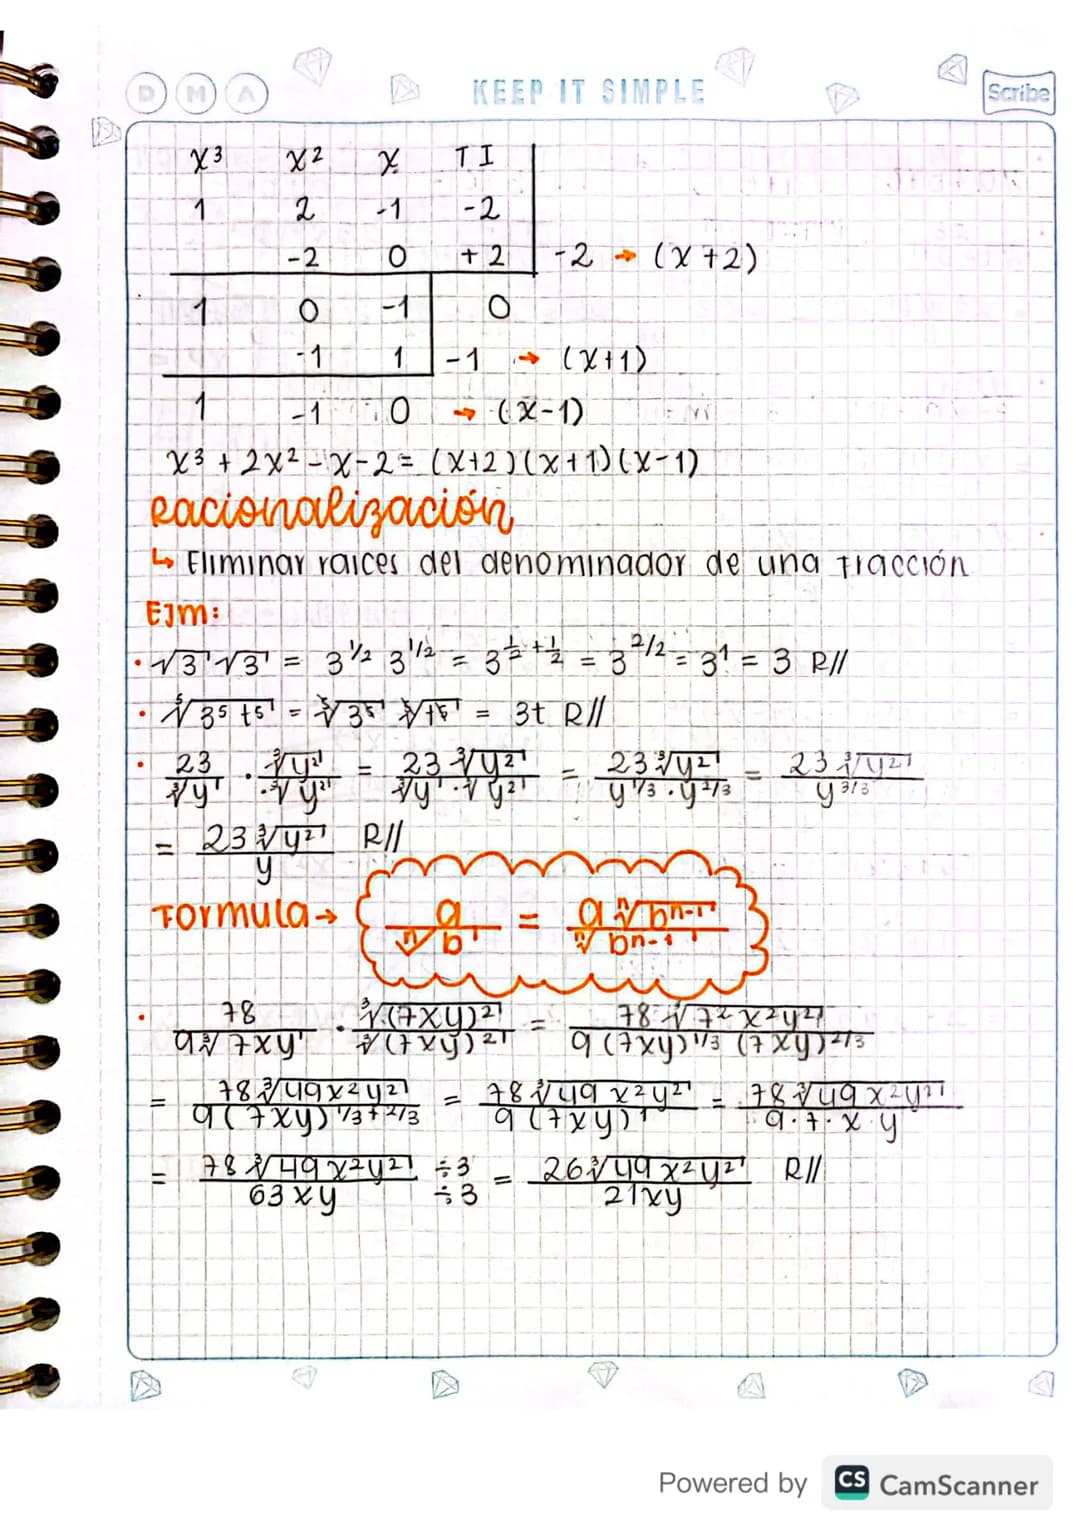 D M A KEEP IT SIMPLE Scribe
x³ x² x TI
1 2 -1 -2
-2 0 +2 | -2 → (x+2)
1 0 -1 0
-1 1 | -1 → (x+1)
1 -1 0 → (x-1)
x³ + 2x² - x - 2 = (x+2)(x+1)(x-1)
Racionalización
↳ Eliminar raices del denominador de una fracción
EJm:
• √3 √3 = 3^1/2 3^1/2 = 3^(1/2 + 1/2) = 3^2/2 = 3¹ = 3 R//
• ⁵√3⁵t⁵ = ⁵√3⁵ ⁵√t⁵ = 3t R//
• 23/³√y · ³√y²/³√y² = 23 ³√y²/³√y · ³√y² = 23 ³√y²/y^1/3 · y^2/3 = 23 ³√y²/y^3/3
= 23 ³√y²/y R//
Formula → a/ⁿ√b = a ⁿ√bⁿ⁻¹/ⁿ√bⁿ⁻¹
• 78/9 ³√7xy · ³√(7xy)²/³√(7xy)² = 78 ³√7²x²y²/9(7xy)^1/3 (7xy)^2/3
= 78 ³√49x²y²/9(7xy)^1/3+2/3 = 78 ³√49x²y²/9(7xy)¹ = 78 ³√49x²y²/9·7·x·y
= 78 ³√49x²y²/63xy ÷3/÷3 = 26 ³√49x²y²/21xy R//
Powered by CS CamScanner